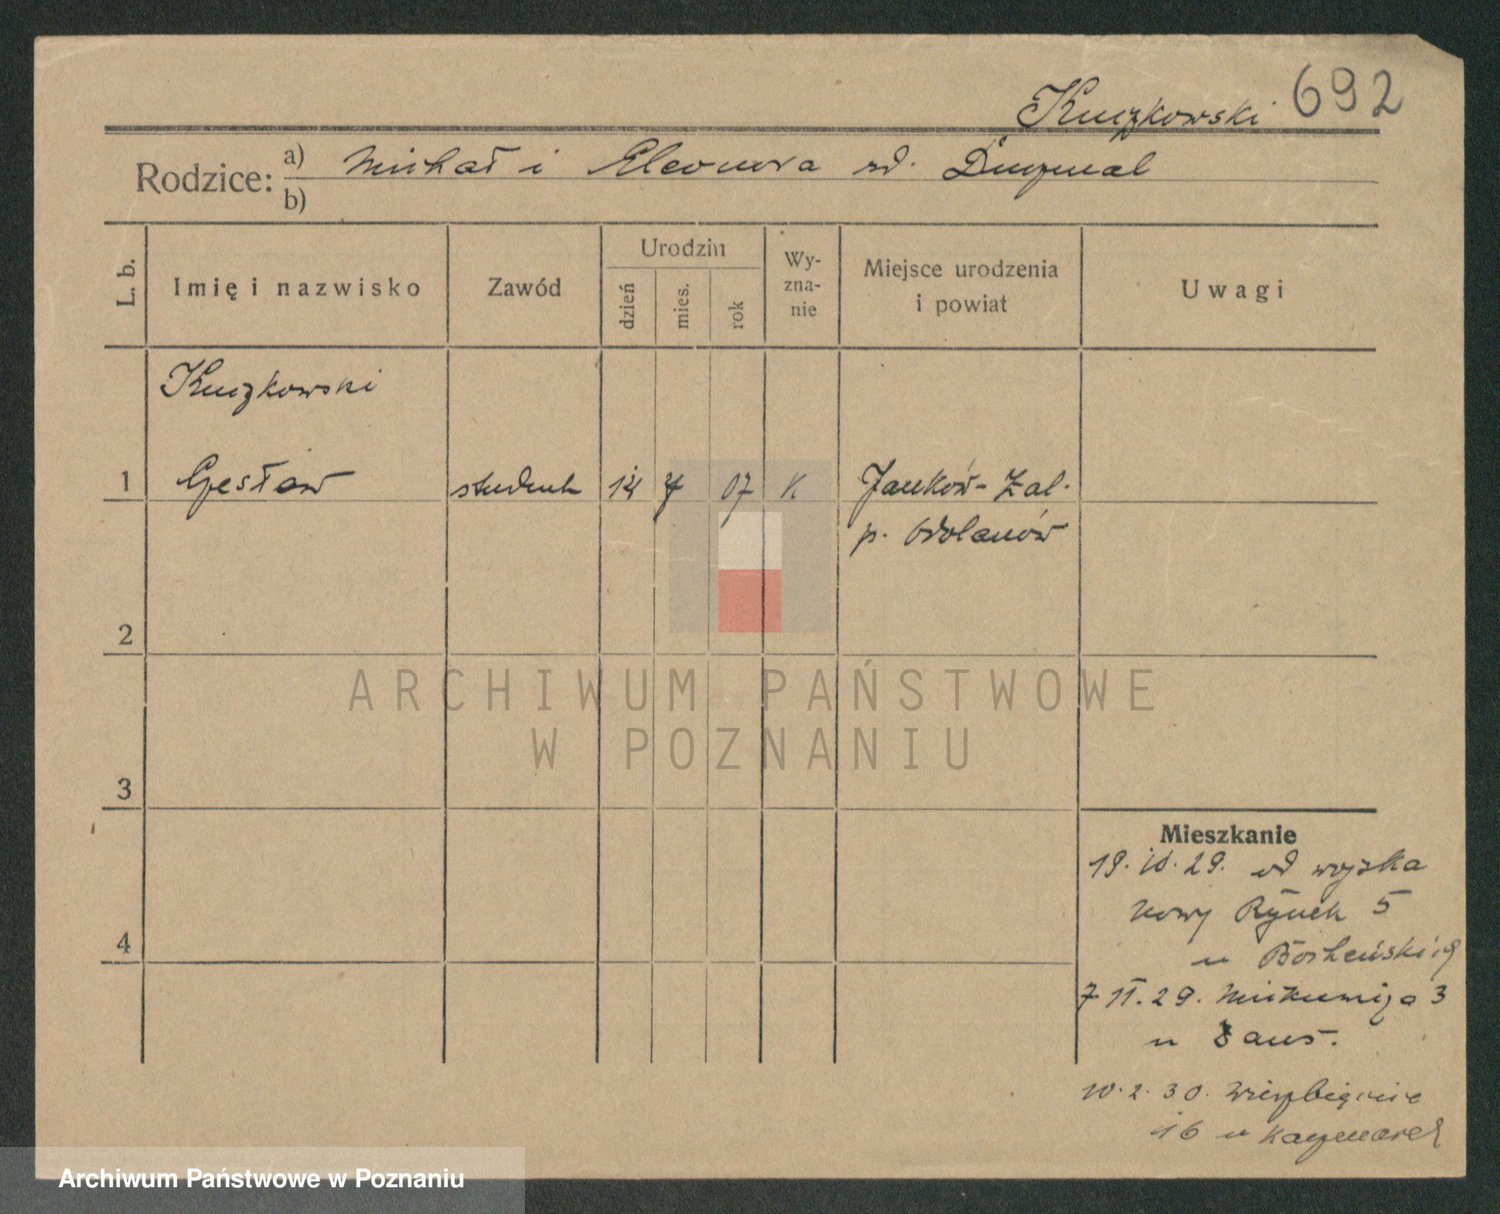 Kuczkowski 692
Rodzice: a) Michał i Eleonora zd.
b)
L. b.
Imię i nazwisko
Zawód
Urodzin
dzień
mies.
rok
Wy-
zna-
nie
Miejsce urodzenia
i powiat
Uwagi
Kuczkowski
1 Czesław student 14 7 07 K Janków-Zal.
p. Odolanów
2
3
4
ARCHIWUM PAŃSTWOWE
W POZNANIU
Mieszkanie
19.10.29. od wojska
Nowy Rynek 5
u
7 11.29. 3
u
10.2.30. Wierzbięcice
16 u Kaczmarek
Archiwum Państwowe w Poznaniu